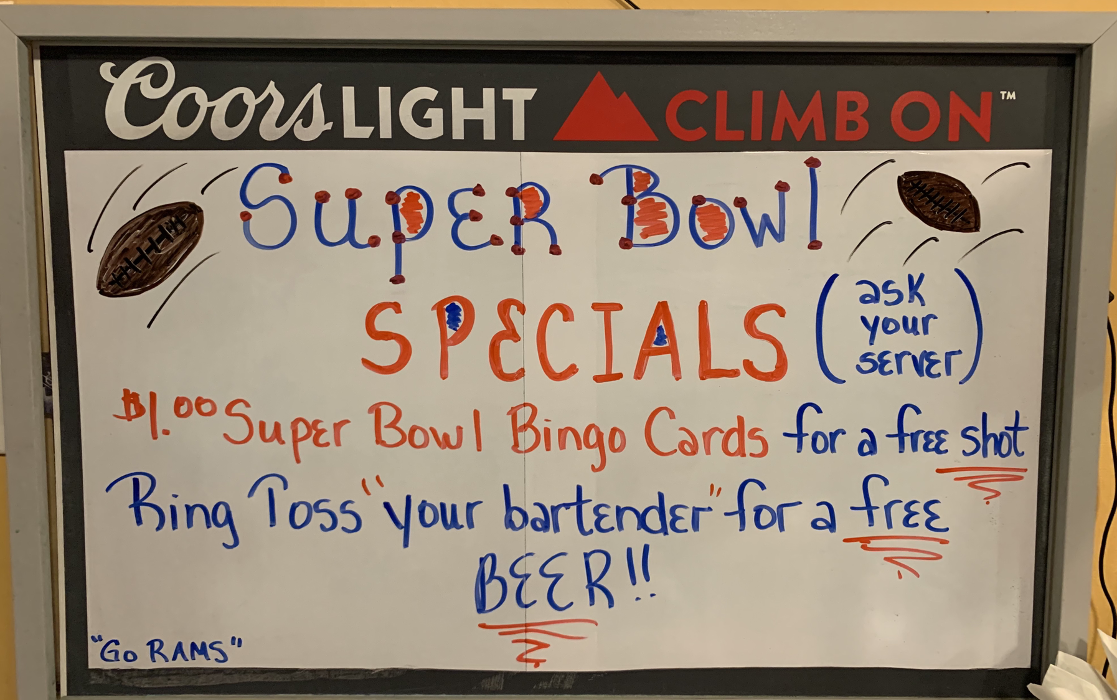 Coors LIGHT CLIMB ON™
Super Bowl
SPECIALS
(ask
your
server)
$1.00 Super Bowl Bingo Cards for a free shot
Ring Toss "your bartender" for a free
BEER!!
"Go RAMS"